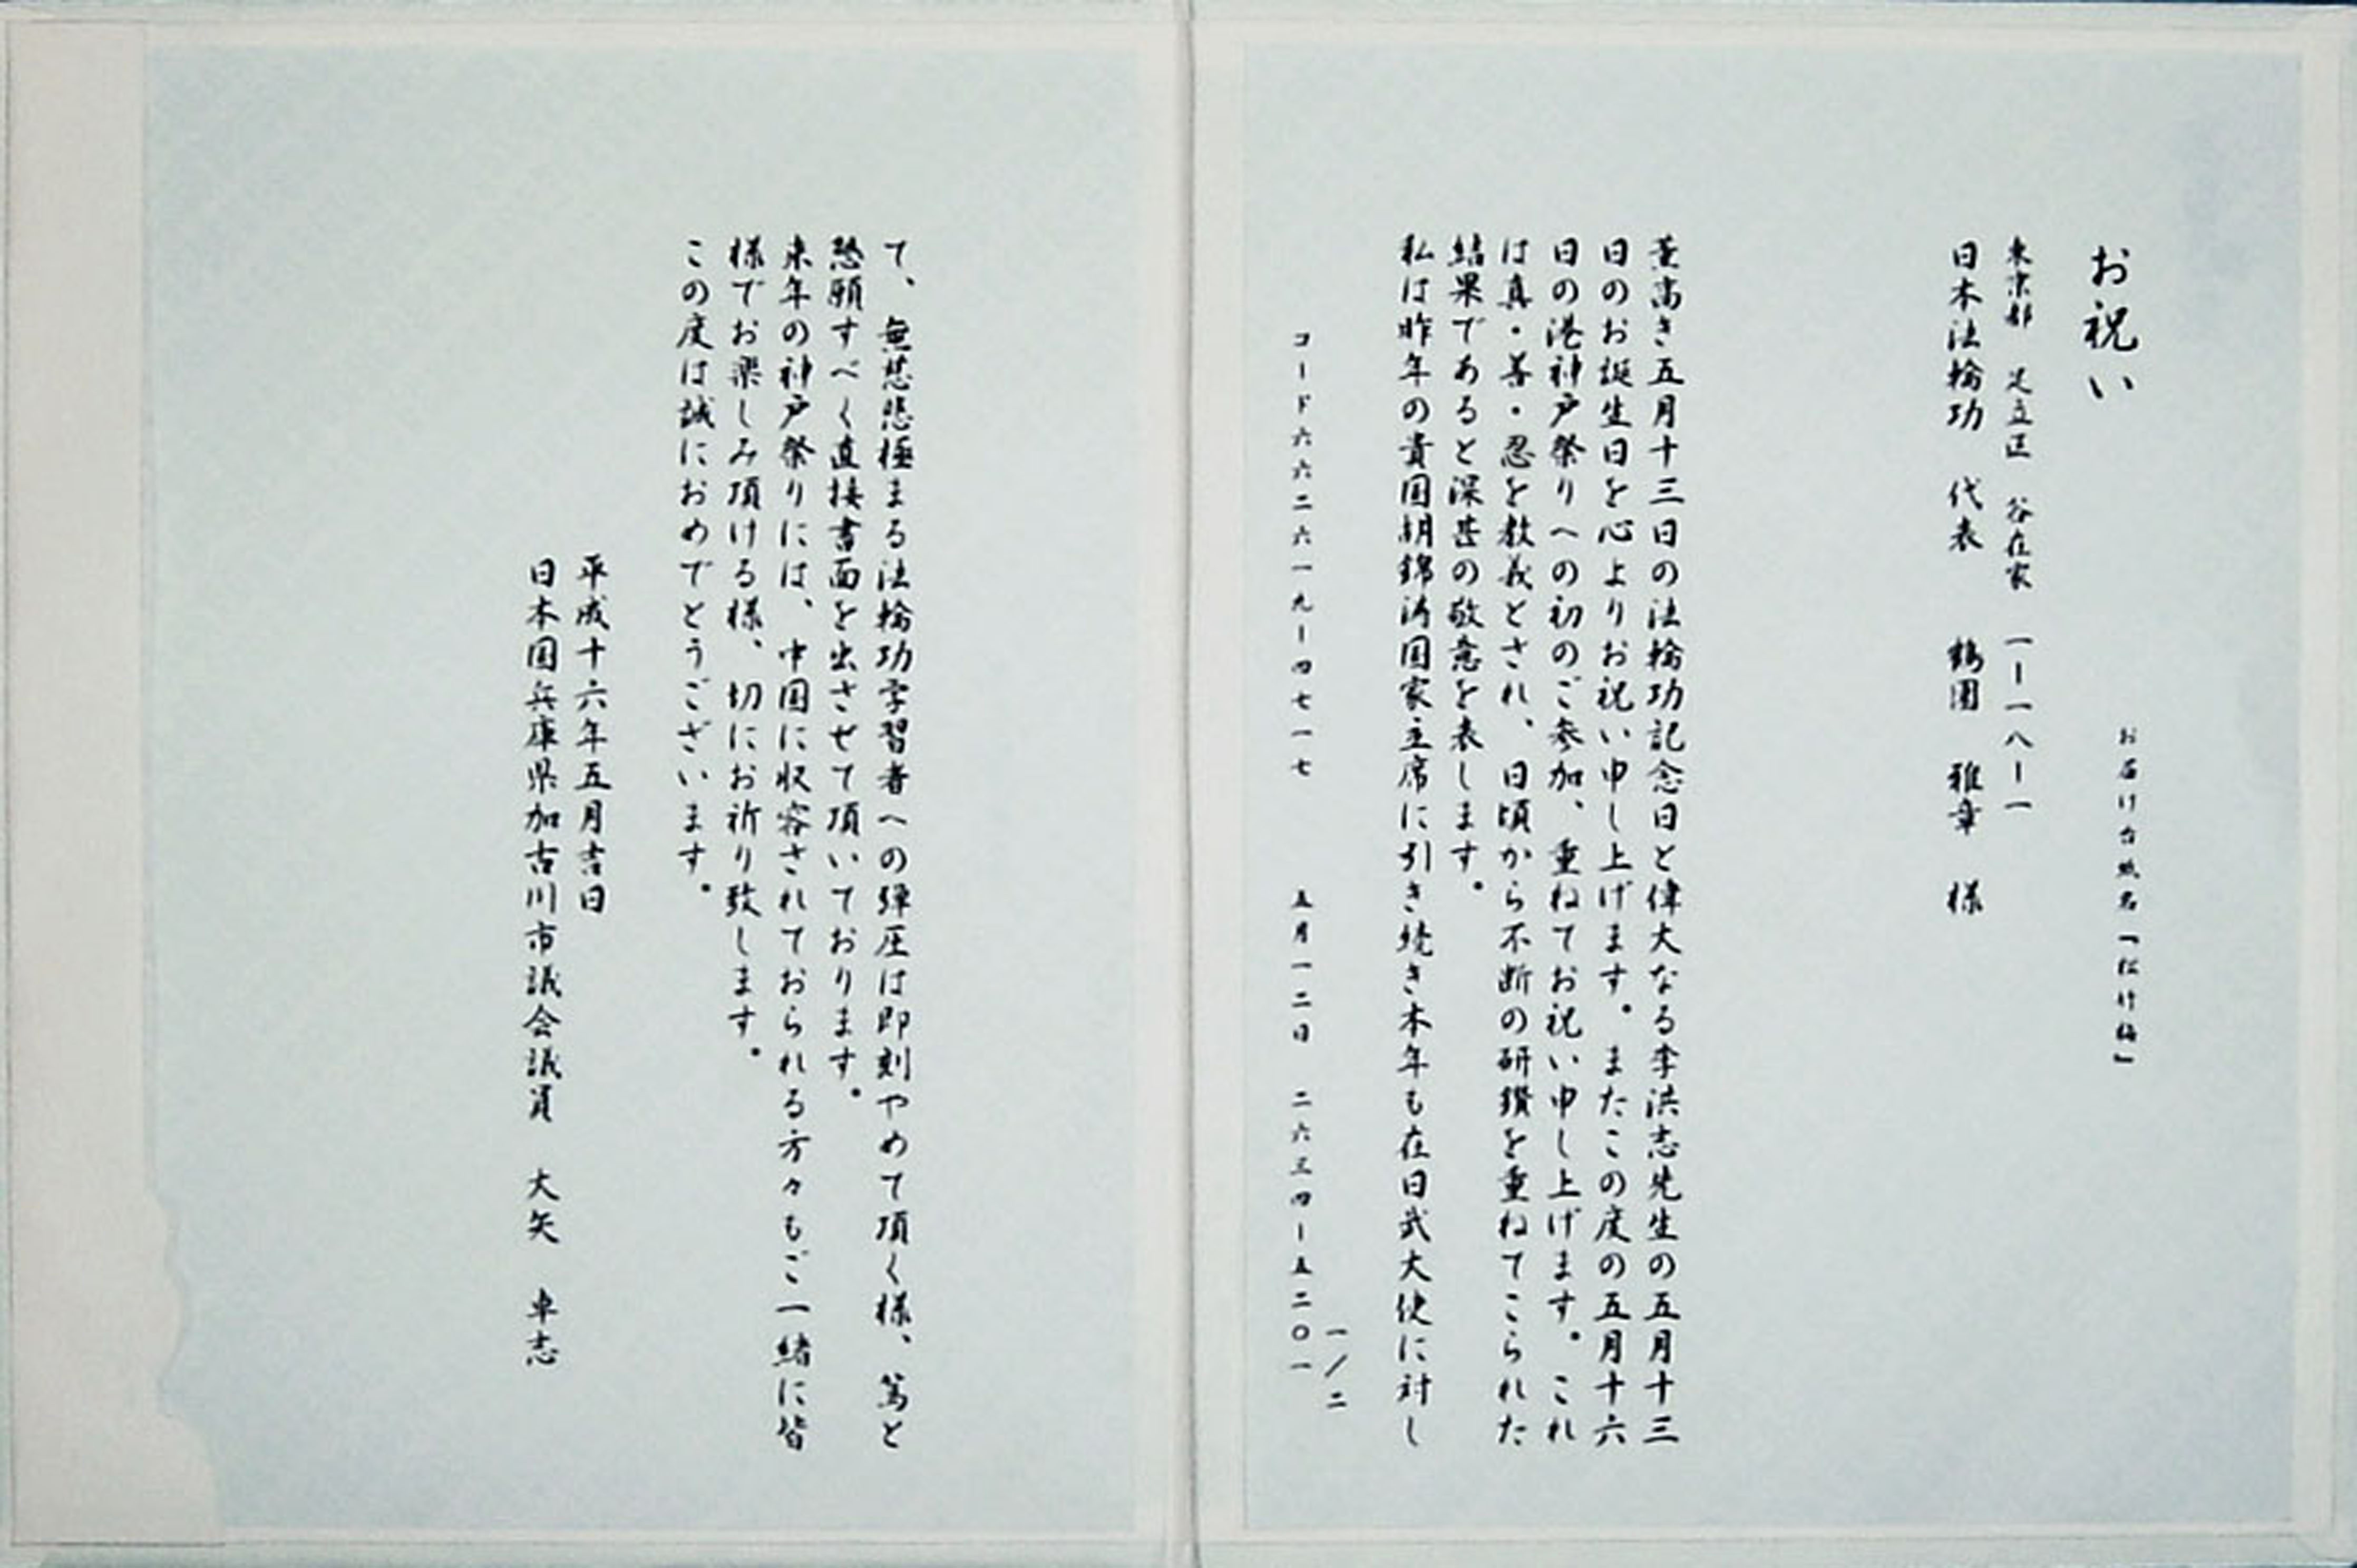 お祝い
お届け台紙名「松竹梅」
東京都 足立区 谷在家 一ー一八ー一
日本法輪功 代表 鶴園 雅章 様
薫高き五月十三日の法輪功記念日と偉大なる李洪志先生の五月十三
日のお誕生日を心よりお祝い申し上げます。またこの度の五月十六
日の港神戸祭りへの初のご参加、重ねてお祝い申し上げます。これ
は真・善・忍を教義とされ、日頃から不断の研鑽を重ねてこられた
結果であると深甚の敬意を表します。
私は昨年の貴国胡錦濤国家主席に引き続き本年も在日武大使に対し
一/二
コード六六二六一九ー四七一七 五月一二日 二六三四ー五二〇一
て、無慈悲極まる法輪功学習者への弾圧は即刻やめて頂く様、篤と
懇願すべく直接書面を出させて頂いております。
来年の神戸祭りには、中国に収容されておられる方々もご一緒に皆
様でお楽しみ頂ける様、切にお祈り致します。
この度は誠におめでとうございます。
平成十六年五月吉日
日本国兵庫県加古川市議会議員 大矢 卓志